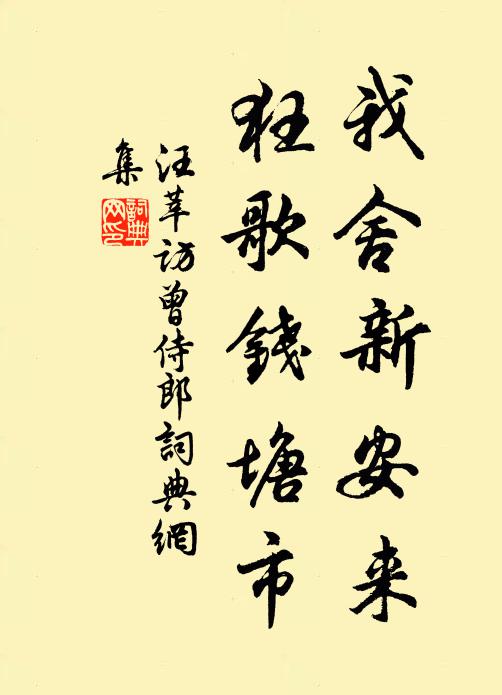 我舍新安来
狂歌錢塘市
汪莘访曾侍郎詞典網
集
詞典
网印